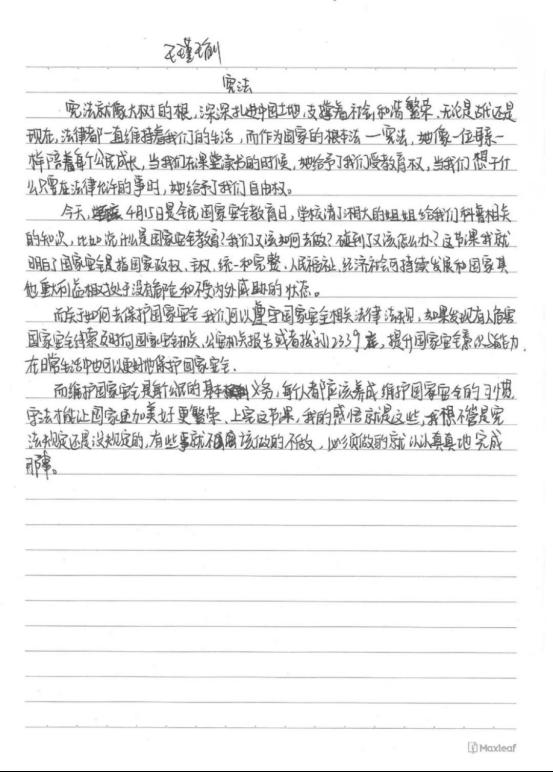 王瑾瑜
宪法
宪法就像大树的根，深深扎进中国土地，支撑着社会和谐繁荣，无论是古代还是
现在，法律都一直维持着我们的生活，而作为国家的根本法一宪法，她像一位母亲一
样陪着每个公民成长，当我们在课堂读书的时候，她给予了我们受教育权，当我们想干什
么只要在法律允许的事时，她给予了我们自由权。
今天，4月15日是全民国家安全教育日，学校请了湘大的姐姐给我们科普相关
的知识，比如说什么是国家安全教育？我们又该如何去做？碰到了又该怎么办？这节课我就
明白了国家安全是指国家政权、主权、统一和完整、人民福祉、经济社会可持续发展和国家其
他重大利益相对处于没有危险和不受内外威胁的状态。
而关于如何去保护国家安全，我们可以遵守国家安全相关法律法规，如果发现有人危害
国家安全线索及时向国家安全机关、公安机关报告或者拨打12339，提升国家安全意识与能力，
在日常生活中也可以更好地保护国家安全.
而维护国家安全是每个公民的基本义务，每个人都应该养成维护国家安全的习惯，
守法才能让国家更加美好更繁荣、上完这节课，我的感悟就是这些，我想不管是宪
法规定还是没规定的，有些事就不该做的不做，必须做的就认认真真地完成
那事。
Maxleaf